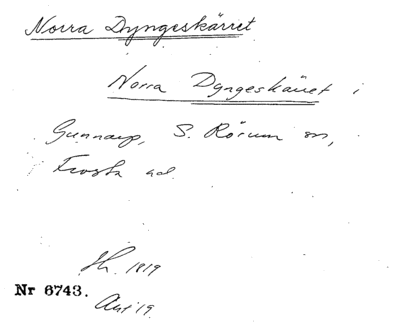 Norra Dyngeskärret
Norra Dyngeskärret i
Gunnarp, S. Rörum sn,
Frosta hd
Sh. 1819
Nr 6743.
Akt 19